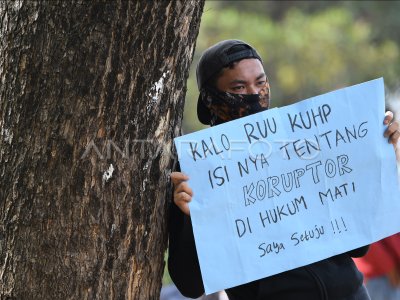 KALO RUU KUHP
ISI NYA TENTANG
KORUPTOR
DI HUKUM MATI
Saya Setuju !!!
ANTARAFOTO